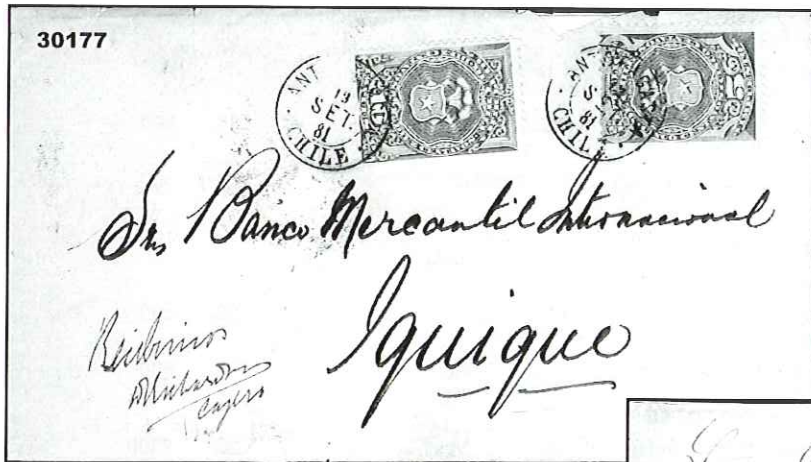 30177
ANT
13
SET.
81
CHILE
ANT
S
81
CHILE
5
Banco Mercantil Internacional
Iquique
Recibimos
Cajero